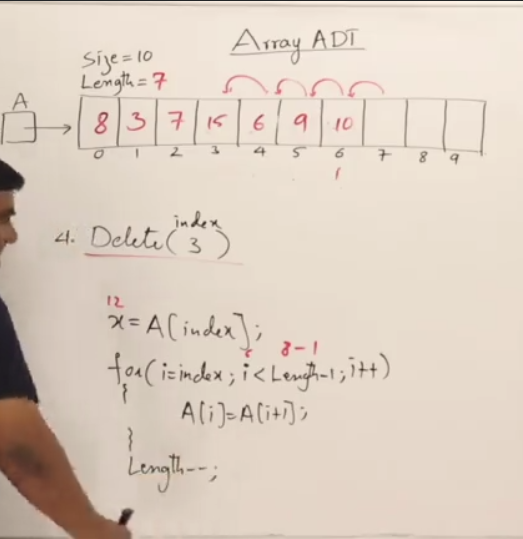 Array ADT
Size = 10
Length = 7
A
8 3 7 15 6 9 10
0 1 2 3 4 5 6 7 8 9
i
4. Delete(3)
index
12
x = A[index];
8-1
for(i=index; i<Length-1; i++)
{
A[i]=A[i+1];
}
Length--;